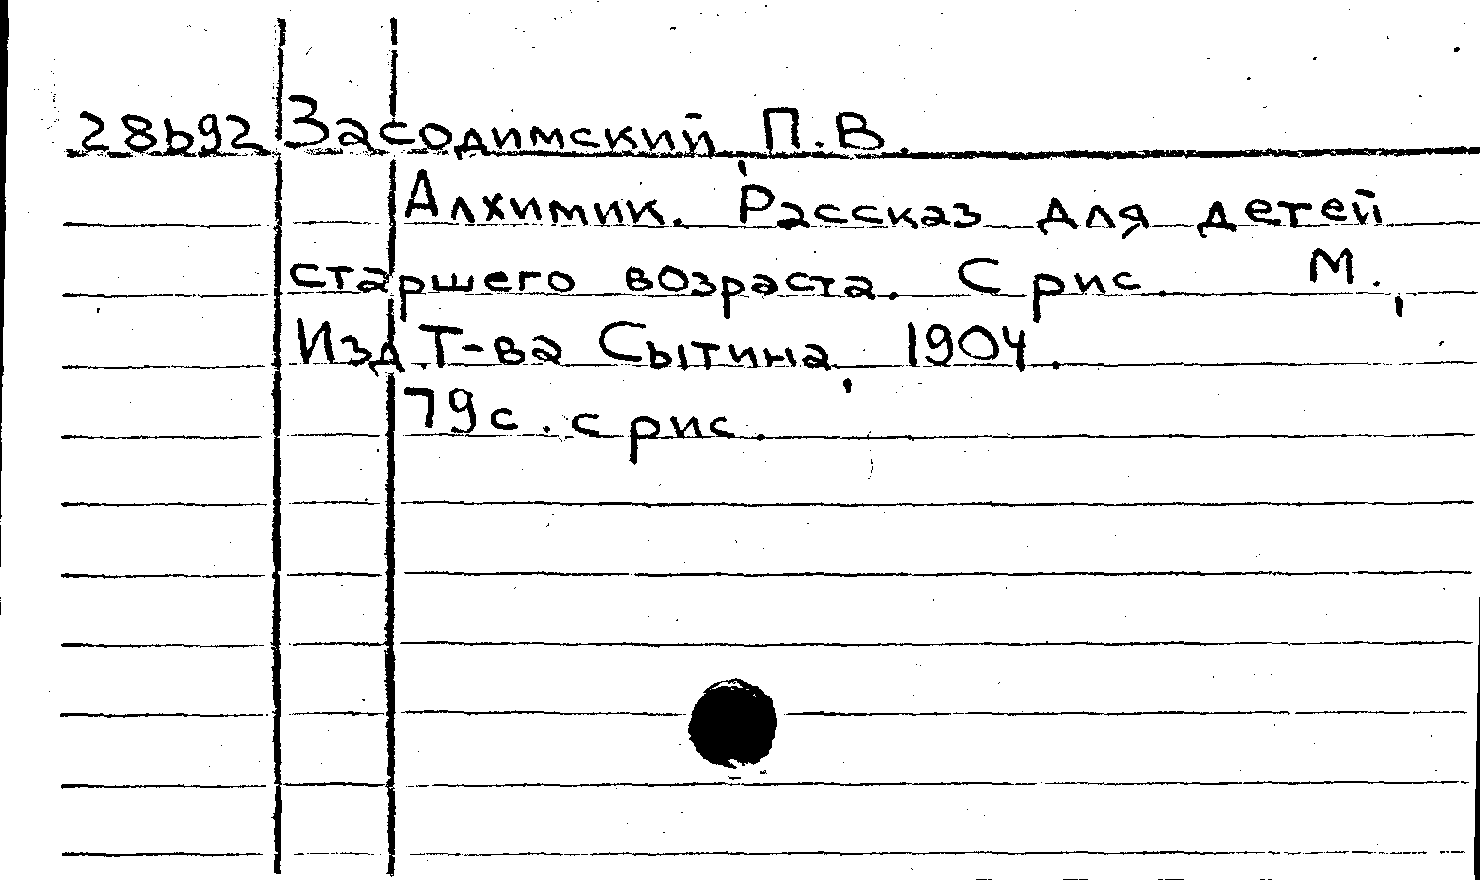 28b92 Засодимский, П.В.
Алхимик. Рассказ для детей
старшего возраста. С рис. М.,
Изд. Т-ва Сытина, 1904.
79с. с рис.